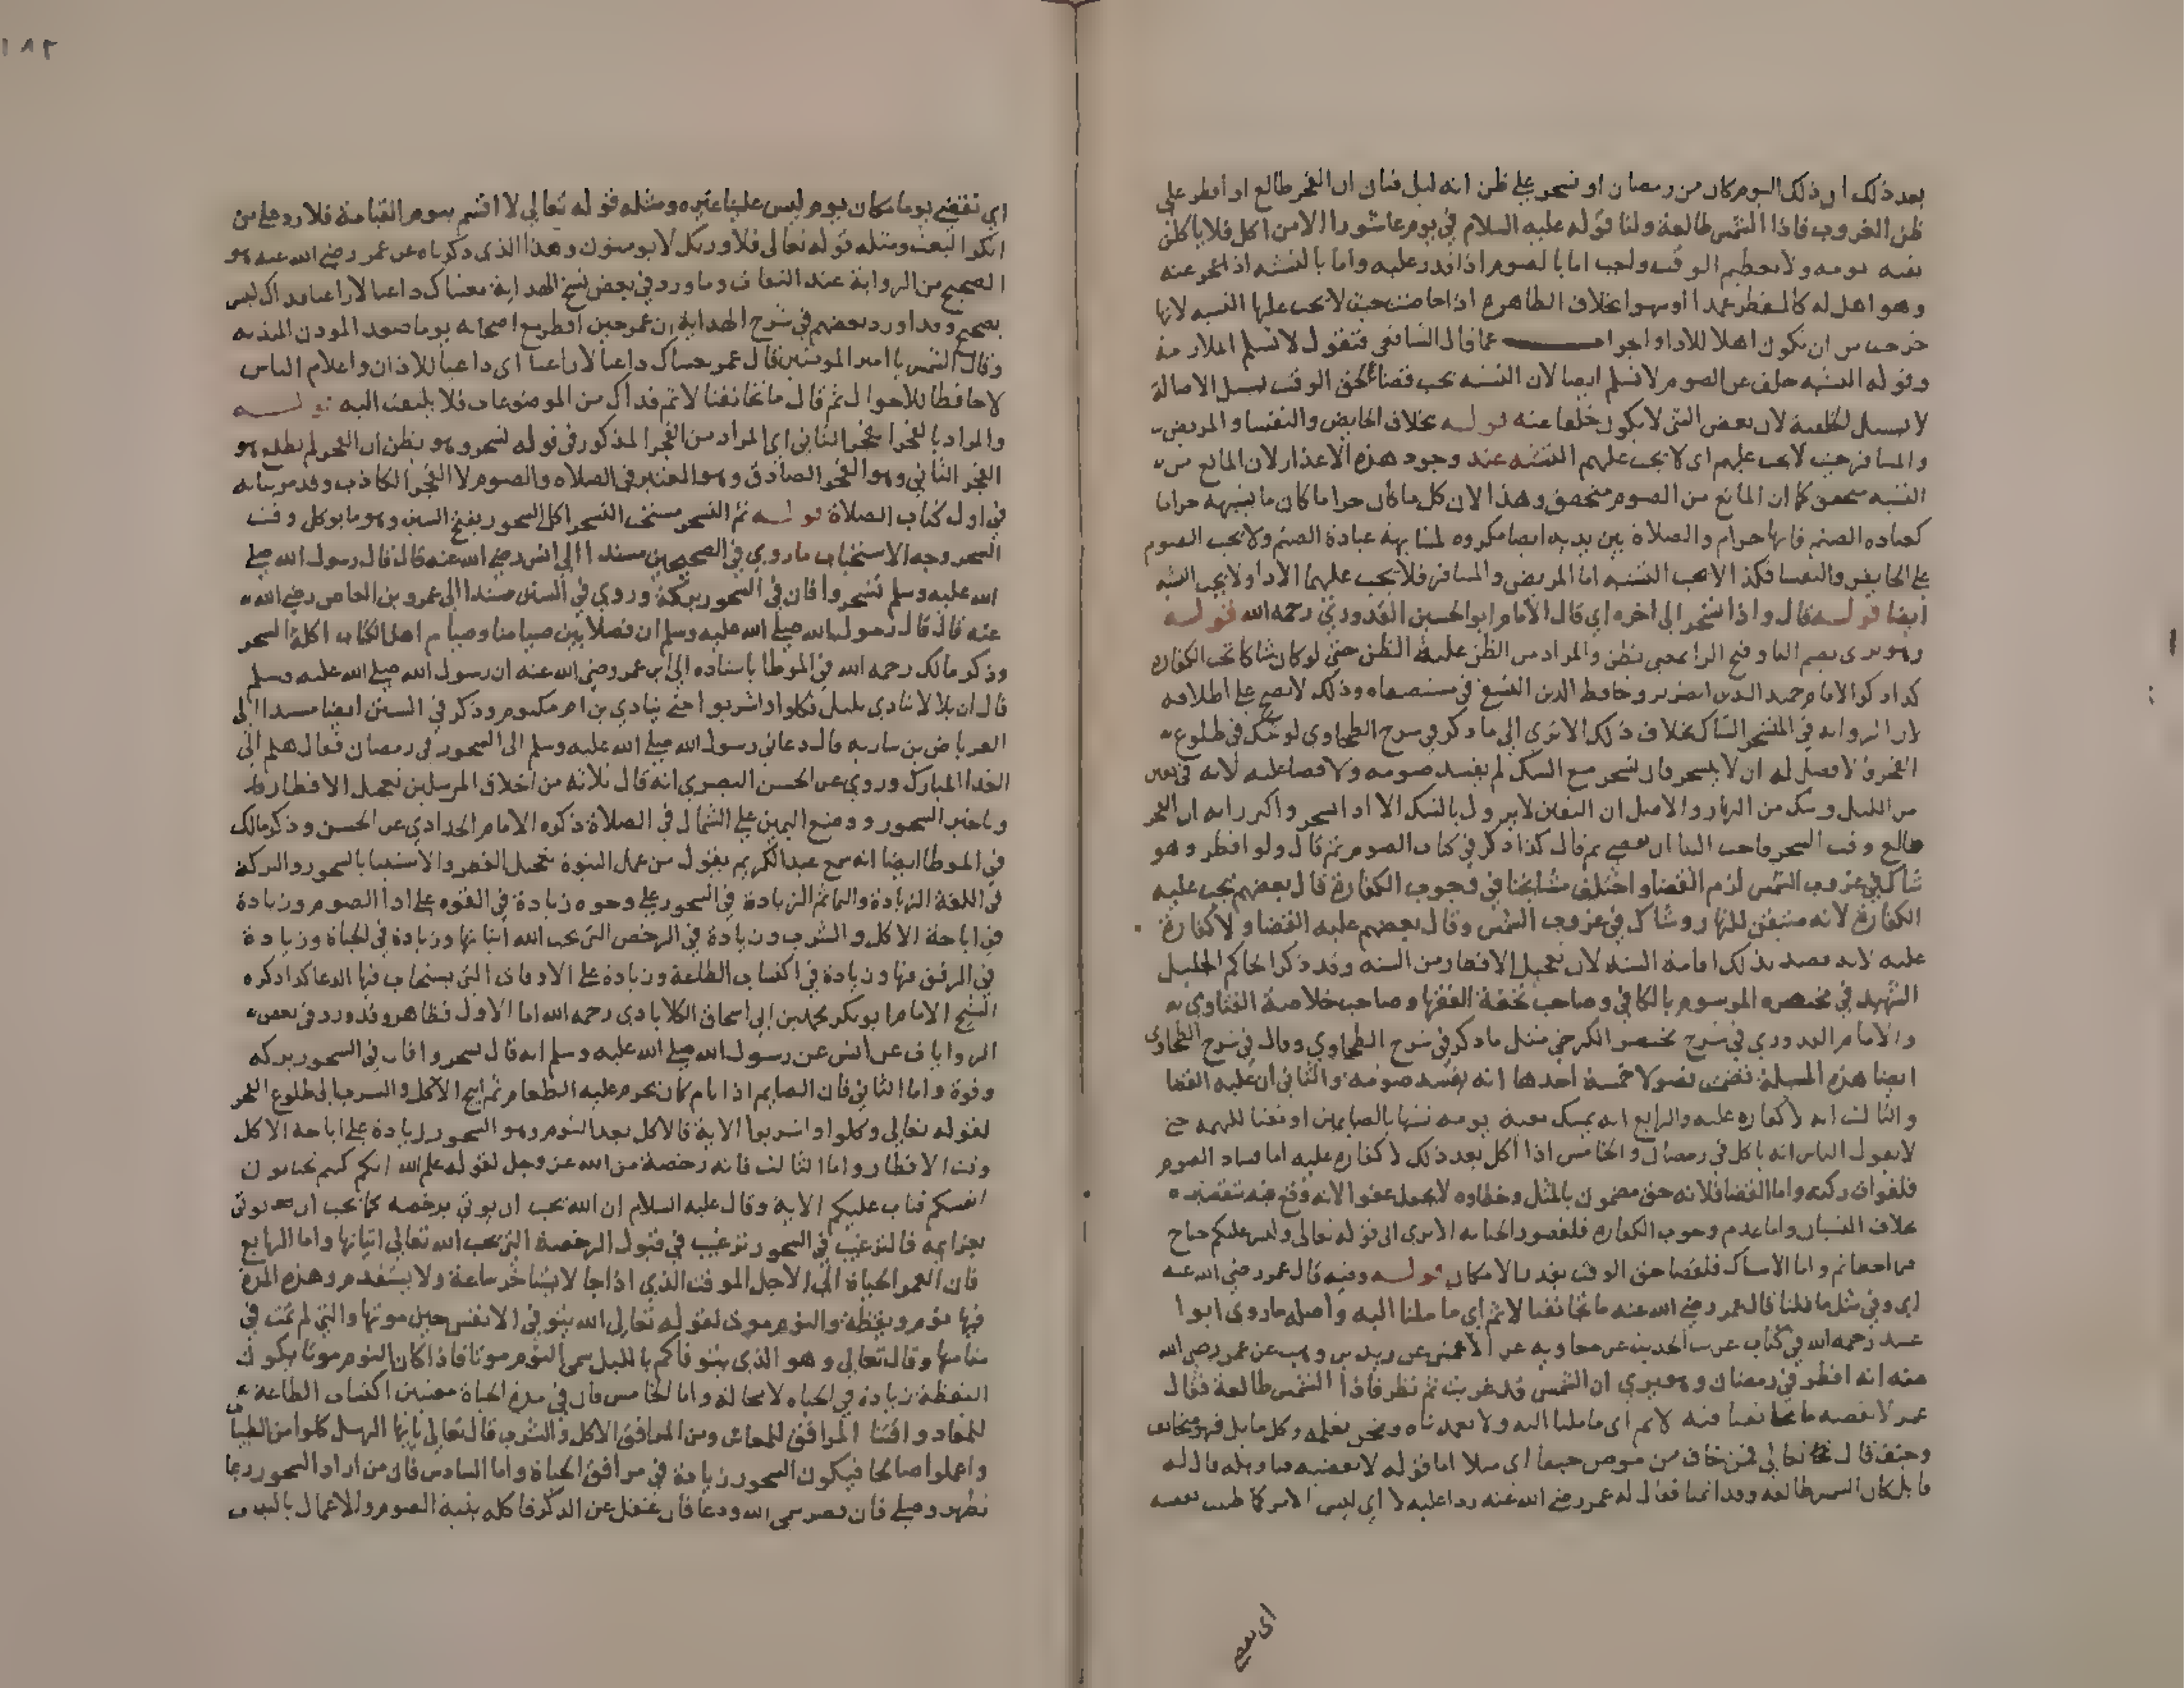 بعد ذلك ان ذلك اليوم كان من رمضان او تسحر على ظن انه ليل فبان ان الفجر طالع او افطر على
ظن الغروب فاذا الشمس طالعة ولنا قوله عليه السلام في يوم عاشورا الا من اكل فلا ياكلن
بقية يومه ولان تعظيم الوقت واجب اما بالصوم اذا قدر عليه واما بالتشبه اذا عجز عنه
وهو اهل له كالمفطر عمدا او سهوا بخلاف الطاهرة اذا حاضت حيث لا يجب عليها التشبه لانها
خرجت من ان تكون اهلا للادا واجوا عما قال الشافعي فنقول لا نسلم الملازمة
وقوله التشبه خلف عن الصوم لا نسلم ايضا لان التشبه يجب قضا لحق الوقت بسبيل الاصالة
لا بسبيل الخلفية لان بعض الشي لا يكون خلفا عنه قوله بخلاف الحايض والنفسا والمريض
والمسافر حيث لا يجب عليهم اي لا يجب عليهم التشبه عند وجود هذه الاعذار لان المانع من
التشبه متحقق كما ان المانع من الصوم متحقق وهذا لان كل ما كان حراما كان ما يشبهه حراما
كعبادة الصنم فانها حرام والصلاة بين يديه ايضا مكروه لمشابهة عبادة الصنم ولا يجب الصوم
على الحايض والنفسا فكذا لا يجب التشبه اما المريض والمسافر فلا يجب عليهما الادا ولا يجب التشبه
ايضا قوله قال واذا تسحر الى اخره اي قال الامام ابو الحسين القدوري رحمه الله قوله
وهو يرى بضم اليا وفتح الرا بمعنى يظن والمراد من الظن غلبة الظن حتى لو كان شاكا تجب الكفارة
كذا ذكر الامام حميد الدين الضرير وحافظ الدين النسفي في مستصفاه وذلك لا يصح على اطلاقه
لان الرواية في المتسحر الشاك بخلاف ذلك الا ترى الى ما ذكر في شرح الطحاوي لو شك في طلوع
الفجر فالافضل له ان لا يتسحر فان تسحر مع الشك لم يفسد صومه ولا قضا عليه لانه في يقين
من الليل وشك من النهار والاصل ان اليقين لا يزول بالشك الا اذا تسحر واكبر رايه ان الفجر
طالع وقت السحر فاحب الينا ان يقضي ثم قال كذا ذكر في كتاب الصوم ثم قال ولو افطر وهو
شاك في غروب الشمس لزم القضا واختلف مشايخنا في وجوب الكفارة قال بعضهم يجب عليه
الكفارة لانه متيقن للنهار وشاك في غروب الشمس وقال بعضهم عليه القضا ولا كفارة
عليه لانه قصد بذلك اقامة السنة لان تعجيل الافطار من السنة وقد ذكر الحاكم الجليل
الشهيد في مختصره الموسوم بالكافي وصاحب تحفة الفقها وصاحب خلاصة الفتاوي
والامام القدوري في شرح مختصر الكرخي مثل ما ذكر في شرح الطحاوي وقال في شرح الطحاوي
ايضا هذه المسيلة تضمنت فصولا خمسة احدها انه يفسد صومه والثاني ان عليه القضا
والثالث انه لا كفارة عليه والرابع انه يمسك بقية يومه تشبها بالصايمين او نفيا للتهمة حتى
لا يقول الناس انه ياكل في رمضان والخامس اذا اكل بعد ذلك لا كفارة عليه اما فساد الصوم
فلفوات ركنه واما القضا فلانه حق مضمون بالمثل وخطاوه لا يجعل عفوا لانه وقع فيه بتقصير
بخلاف النسيان واما عدم وجوب الكفارة فلقصور الجناية الا ترى الى قوله تعالى وليس عليكم جناح
فيما اخطاتم واما الامساك فلقضا حق الوقت بقدر الامكان قوله وفيه قال عمر رضي الله عنه
اي وفي مثل ما قلنا قال عمر رضي الله عنه ما تجانفنا لاثم اي ما ملنا اليه واصله ما روى ابوا
عبيد رحمه الله في كتاب غريب الحديث عن معاوية عن الاعمش عن زيد بن وهب عن عمر رضي الله
عنه انه افطر في رمضان وهو يرى ان الشمس قد غربت ثم نظر فاذا الشمس طالعة فقال
عمر لا نقضيه ما تجانفنا فيه لاثم اي ما ملنا اليه ولا تعمدناه ونحن نعلمه وكل مايل فهو متجانف
وجنف قال تعالى فمن خاف من موص جنفا اي ميلا اما قوله لا نقضيه
طالعة فقال له عمر رضي الله عنه ردا عليه لا اي ليس الامر كما
اي نقضي
١٨٢
اي نقضي يوما مكان يوم ليس علينا غيره ومثله قوله تعالى لا اقسم بيوم القيامة فلا رد على من
انكر البعث ومثله قوله تعالى فلا وربك لا يومنون وهذا الذي ذكرناه عن عمر رضي الله عنه هو
الصحيح من الرواية عند الثقات وما ورد في بعض نسخ الهداية بعثناك داعيا لا راعيا فذاك ليس
بصحيح وقد اورد بعضهم في شرح الهداية ان عمر حين افطر مع اصحابه يوما صعد الموذن المئذنة
وقال الشمس يا امير المومنين فقال عمر بعثناك داعيا لا راعيا اي داعيا للاذان واعلام الناس
لا حافظا للاحوال ثم قال ما تجانفنا لاثم فذاك من الموضوعات فلا يلتفت اليه قوله
والمراد بالفجر الفجر الثاني اي المراد من الفجر المذكور في قوله تسحر وهو يظن ان الفجر لم يطلع هو
الفجر الثاني وهو الفجر الصادق وهو المعتبر في الصلاه والصوم لا الفجر الكاذب وقد مر بيانه
في اول كتاب الصلاة قوله ثم التسحر مستحب التسحر اكل السحور بفتح السين وهو ما يوكل وقت
السحر وجه الاستحباب ما روي في الصحيحين مسندا الى انس رضي الله عنه قال قال رسول الله صلى
الله عليه وسلم تسحروا فان في السحور بركة وروي في السنن مسندا الى عمرو بن العاص رضي الله
عنه قال قال رسول الله صلى الله عليه وسلم ان فصلا بين صيامنا وصيام اهل الكتاب اكلة السحر
وذكر مالك رحمه الله في الموطا باسناده الى ابن عمر رضي الله عنه ان رسول الله صلى الله عليه وسلم
قال ان بلالا ينادي بليل فكلوا واشربوا حتى ينادي بن ام مكتوم وذكر في السنن ايضا مسندا الى
العرباض بن سارية قال دعاني رسول الله صلى الله عليه وسلم الى السحور في رمضان فقال هلم الى
الغدا المبارك وروي عن الحسن البصري انه قال ثلاثة من اخلاق المرسلين تعجيل الافطار
وتاخير السحور ووضع اليمين على الشمال في الصلاة ذكره الامام الحدادي عن الحسن وذكر مالك
في الموطا ايضا انه سمع عبد الكريم يقول من عمل النبوة تعجيل الفطر والاستينا بالسحور والبركة
في اللغة الزيادة والنما ثم الزيادة في السحور على وجوه زيادة في القوه على ادا الصوم وزيادة
في اباحة الاكل والشرب وزيادة في الرخص التي يحب الله اتيانها وزيادة في الحياة وزيادة
في الرفق فيها وزيادة في اكتساب الطاعة وزيادة على الاوقات التي يستجاب فيها الدعا كذا ذكره
الشيخ الامام ابو بكر محمد بن ابي اسحاق الكلاباذي رحمه الله اما الاول فظاهر وقد ورد في بعض
الروايات عن انس عن رسول الله صلى الله عليه وسلم انه قال تسحروا فان في السحور بركه
وقوة واما الثاني فان الصايم اذا نام كان يحرم عليه الطعام ثم ابيح الاكل والشرب الى طلوع الفجر
لقوله تعالى وكلوا واشربوا الاية فالاكل بعد النوم وهو السحور زيادة على اباحة الاكل
وقت الافطار واما الثالث فانه رخصة من الله عز وجل لقوله علم الله انكم كنتم تختانون
انفسكم فتاب عليكم الاية وقال عليه السلام ان الله يحب ان يوتى برخصه كما يحب ان يوتى
بعزايمه فالترغيب في السحور ترغيب في قبول الرخصة التي يحب الله تعالى اتيانها واما الرابع
فان العمر الحياة الى الاجل الموقت الذي اذا جا لا يستاخر ساعة ولا يستقدم وهذه المدة
فيها نوم ويقظة والنوم موت لقوله تعالى الله يتوفى الانفس حين موتها والتي لم تمت في
منامها وقال تعالى وهو الذي يتوفاكم بالليل سمى النوم موتا فاذا كان النوم موتا يكون
اليقظة زيادة في الحياه لا محالة واما الخامس فان في مدة الحياة معنيين اكتساب الطاعة
للمعاد واقتنا المرافق للمعاش ومن المرافق الاكل والشرب قال تعالى يايها الرسل كلوا من الطيبات
واعملوا صالحا فيكون السحور زيادة في مرافق الحياة واما السادس فان من اراد السحور ربما
تطهر وصلى فان قصر سمى الله ودعا فان غفل عن الذكر فاكله بنية الصوم والاعمال بالنيات